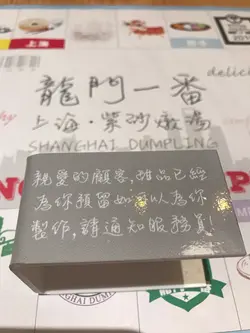 上海
delici
龍門一番
上海·紫砂燉湯
SHANGHAI DUMPLING
親愛的顧客,雅品已經
為你預留如可以為你
製作,請通知服務員
SHANGHAI DUMP